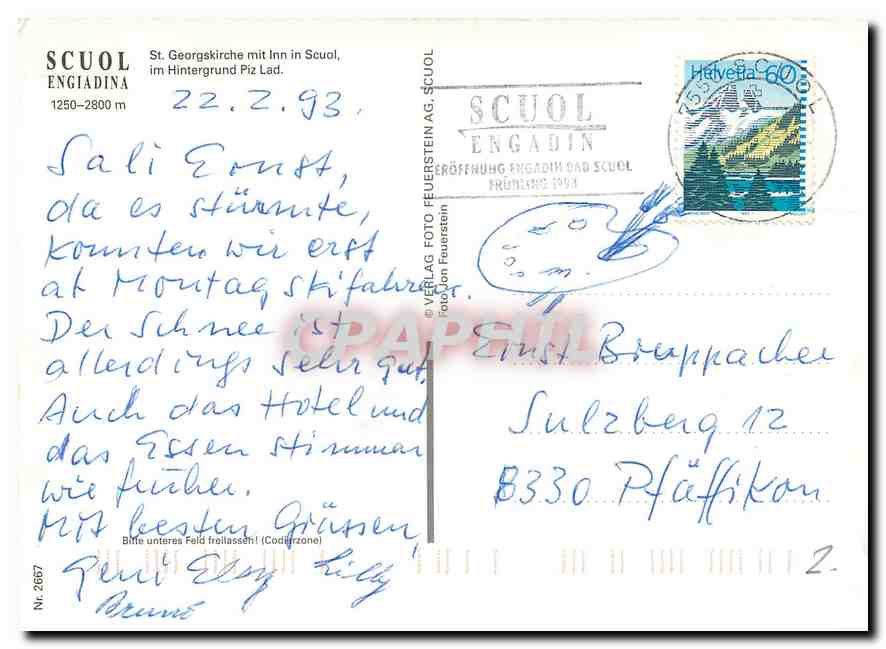 SCUOL
ENGIADINA
1250–2800 m
St. Georgskirche mit Inn in Scuol,
im Hintergrund Piz Lad.
22.2.93.
Sali Ernst,
da es stürmte,
konnten wir erst
at Montag skifahren.
Der Schnee ist
allerdings sehr gut,
Auch das Hotel und
das Essen stimmen
wie früher.
Mit besten Grüssen,
Bitte unteres Feld freilassen! (Codierzone)
Geni Elsy Lilly
Bruno
Nr. 2667
© VERLAG FOTO FEUERSTEIN AG. SCUOL
Foto Jon Feuerstein
SCUOL
ENGADIN
ERÖFFNUNG ENGADIN BAD SCUOL
FRÜHLING 1993
7550 SCUOL
Helvetia 60
CPAPHIL
Ernst Bruppacher
Sulzberg 12
8330 Pfäffikon
2.-